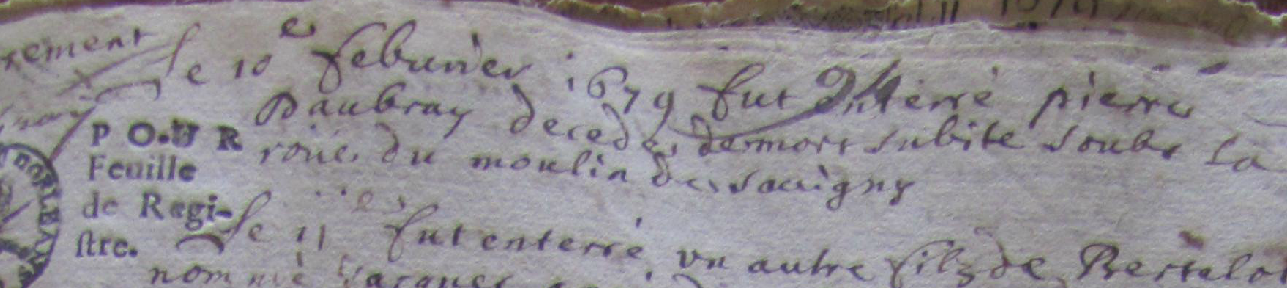 rement
le 10e febvrier 1679 fut enterré pierre
Daubray decedé de mort subite soubz la
roüe du moulin de savigny
POUR
Feuille
de Regi-
stre.
le 11e fut enterré un autre filz de Bertelo
nommé Jacques
24